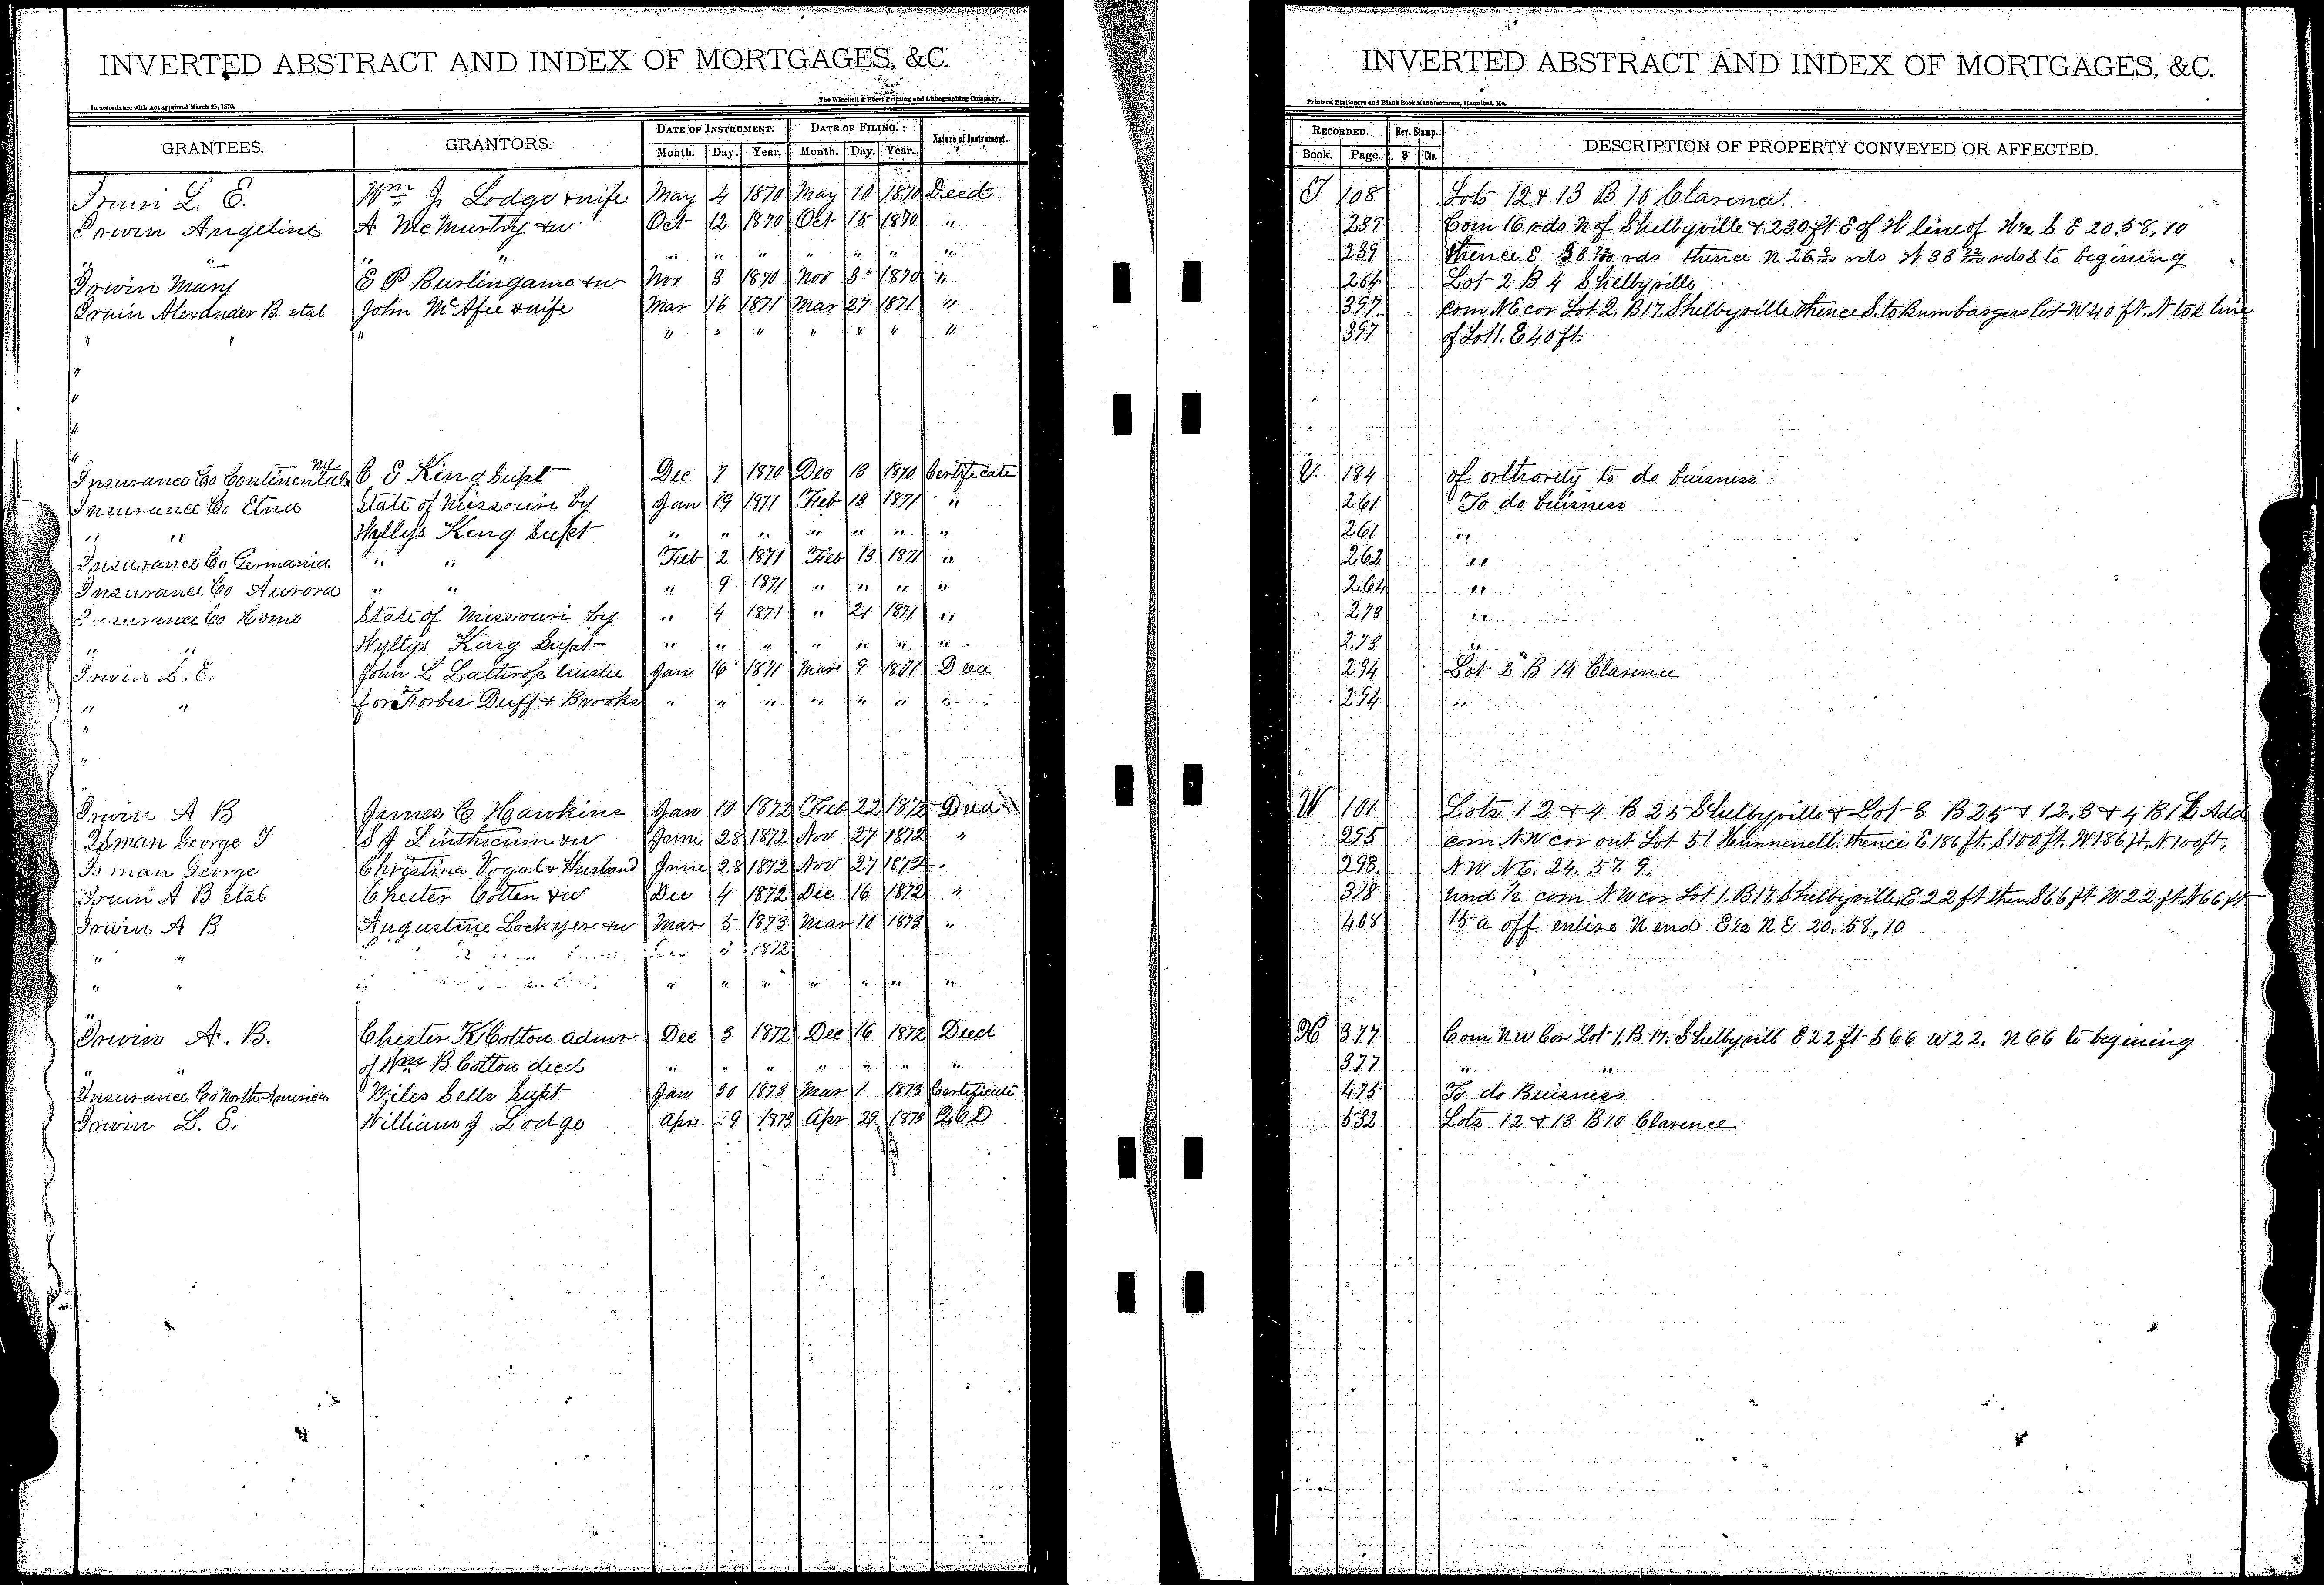 INVERTED ABSTRACT AND INDEX OF MORTGAGES, &C.
In accordance with Act approved March 25, 1870.
The Winchell & Ebert Printing and Lithographing Company,
GRANTEES. GRANTORS. DATE OF INSTRUMENT. DATE OF FILING. Nature of Instrument.
Month. Day. Year. Month. Day. Year.
Irwin L. E. Wm J. Lodge & wife May 4 1870 May 10 1870 Deed
Irwin Angeline A McMurtry & w Oct 12 1870 Oct 15 1870 "
" " " " " " " "
Irwin Mary E P Burlingame & w Nov 3 1870 Nov 8 1870 "
Irwin Alexander B. et al John McAfee & wife Mar 16 1871 Mar 27 1871 "
" " " " " " " " " "
"
"
"
"
Insurance Co Continental C E King Supt Dec 7 1870 Dec 13 1870 Certificate
Insurance Co Etna State of Missouri by Jan 19 1871 Feb 13 1871 "
" " Wyllys King Supt " " " " " " "
Insurance Co Germania " " Feb 2 1871 Feb 13 1871 "
Insurance Co Aurora " " " 9 1871 " " " "
Insurance Co Home State of Missouri by " 4 1871 " 21 1871 "
" " Wyllys King Supt " " " " " " "
Irwin L. E. John L Lathrop trustee Jan 16 1871 Mar 9 1871 Deed
" " for Forbes Duff & Brooks " " " " " " "
"
"
Irwin A B James C Hawkins Jan 10 1872 Feb 22 1872 Deed
Isman George J S J Linthicum & w June 28 1872 Nov 27 1872 "
Isman George Christina Vogal & Husband June 28 1872 Nov 27 1872 "
Irwin A B et al Chester Cotten & w Dec 4 1872 Dec 16 1872 "
Irwin A B Augustine Lockyer & w Mar 5 1873 Mar 10 1873 "
" " 1872
" " " " " " " " "
"
Irwin A. B. Chester K Cotton admr Dec 3 1872 Dec 16 1872 Deed
" " of Wm B Cotton decd " " " " " " "
Insurance Co North America Miles Sells Supt Jan 30 1873 Mar 1 1873 Certificate
Irwin L. E. William J Lodge Apr 9 1873 Apr 29 1873 Q C D
INVERTED ABSTRACT AND INDEX OF MORTGAGES, &C.
Printers, Stationers and Blank Book Manufacturers, Hannibal, Mo.
RECORDED. Rev. Stamp. DESCRIPTION OF PROPERTY CONVEYED OR AFFECTED.
Book. Page. $ Cts.
T 108 Lots 12 & 13 B 10 Clarence
239 Com 16 rds N of Shelbyville & 230 ft E of W line of W½ S E 20, 58, 10
239 thence E rds thence N rds W rds S to begining
264 Lot 2 B 4 Shelbyville
397 com N E cor Lot 2, B 17, Shelbyville thence S. to Bumbargers lot W 40 ft. N to line
397 of Lot 1. E 40 ft.
V. 184 of orthority to do buisness
261 To do buisness
261 "
262 "
264 "
278 "
278 "
294 Lot 2 B 14 Clarence
294 "
W 101 Lots 1 2 & 4 B 25 Shelbyville & Lot 3 B 25 & 1 2, 3 & 4 B 1 Add
295 com N.W cor out Lot 51 Hunnewell. thence E 186 ft. S 100 ft. W 186 ft. N 100 ft.
298 N. W N E. 24. 57. 9.
318 und ½ com N W cor Lot 1, B 17, Shelbyville, E 22 ft then S 66 ft W 22 ft N 66 ft
408 15 a off entire N end E½ N E. 20. 58, 10
377 Com NW Cor Lot 1, B 17, Shelbyvill E 22 ft S 66 W 22. N 66 to begining
377 " "
475 To do Buisness
532 Lots 12 & 13 B 10 Clarence